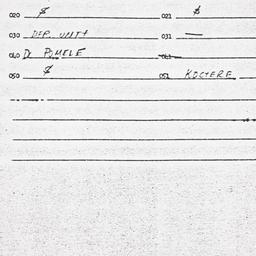 020 $ 021 $
030 DEP. UNIT 031 —
040 De POMELE 041
050 $ 051 KOCTERE